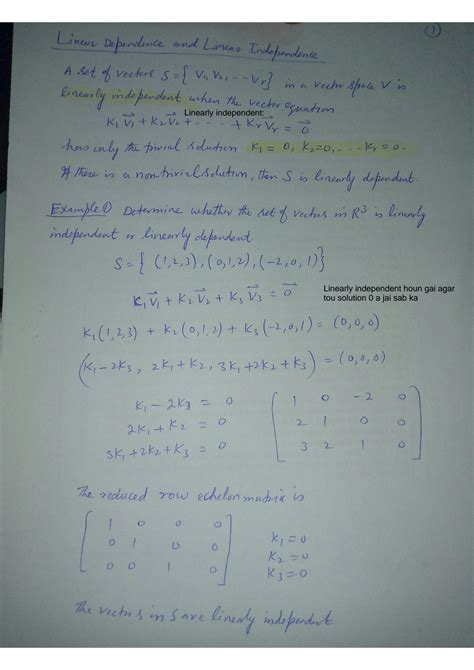 ①
Linear Dependence and Linear Independence
A set of vectors S = { V₁, V₂, -- Vr} in a vector space V is
linearly independent when the vector equation
Linearly independent:
K₁ V⃗₁ + K₂ V⃗₂ + - - - - + Kr V⃗r = 0⃗
has only the trivial solution K₁ = 0, K₂=0, - - - Kr = 0.
If there is a nontrivial solution, then S is linearly dependent.
Example① Determine whether the set of vectors in R³ is linearly
independent or linearly dependent.
S = { (1,2,3), (0,1,2), (-2,0,1)}
K₁ V⃗₁ + K₂ V⃗₂ + K₃ V⃗₃ = 0⃗
Linearly independent houn gai agar
tou solution 0 a jai sab ka
K₁(1,2,3) + K₂(0,1,2) + K₃(-2,0,1) = (0,0,0)
(K₁-2K₃, 2K₁+K₂, 3K₁+2K₂+K₃) = (0,0,0)
K₁ - 2K₃ = 0
2K₁ + K₂ = 0
3K₁+2K₂+K₃ = 0
1 0 -2 0
2 1 0 0
3 2 1 0
The reduced row echelon matrix is
1 0 0 0
0 1 0 0
0 0 1 0
K₁ = 0
K₂ = 0
K₃ = 0
The vectors in S are linearly independent